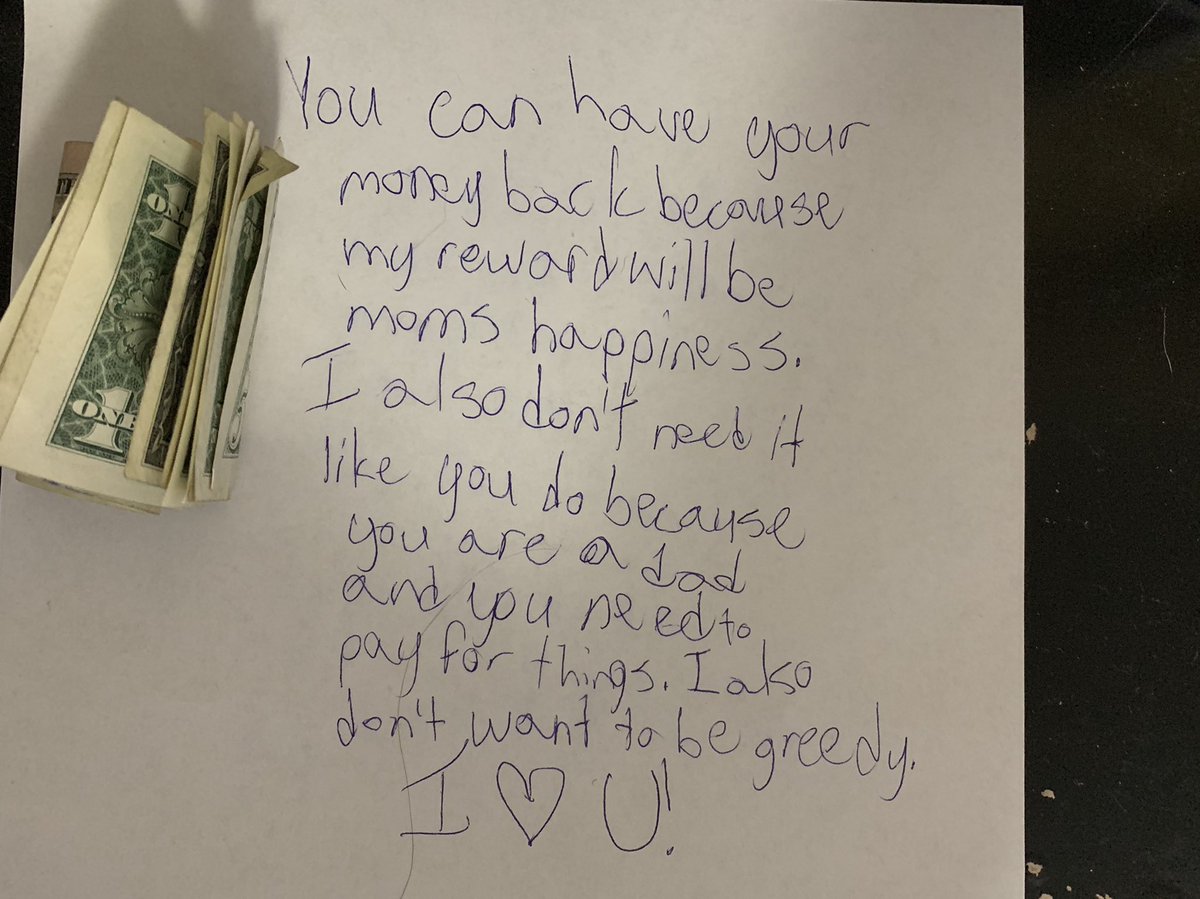 You can have your
money back because
my reward will be
moms happiness.
I also don't need it
like you do because
you are a dad
and you need to
pay for things. I also
don't want to be greedy.
I ♡ U!
1
ONE
1
ONE